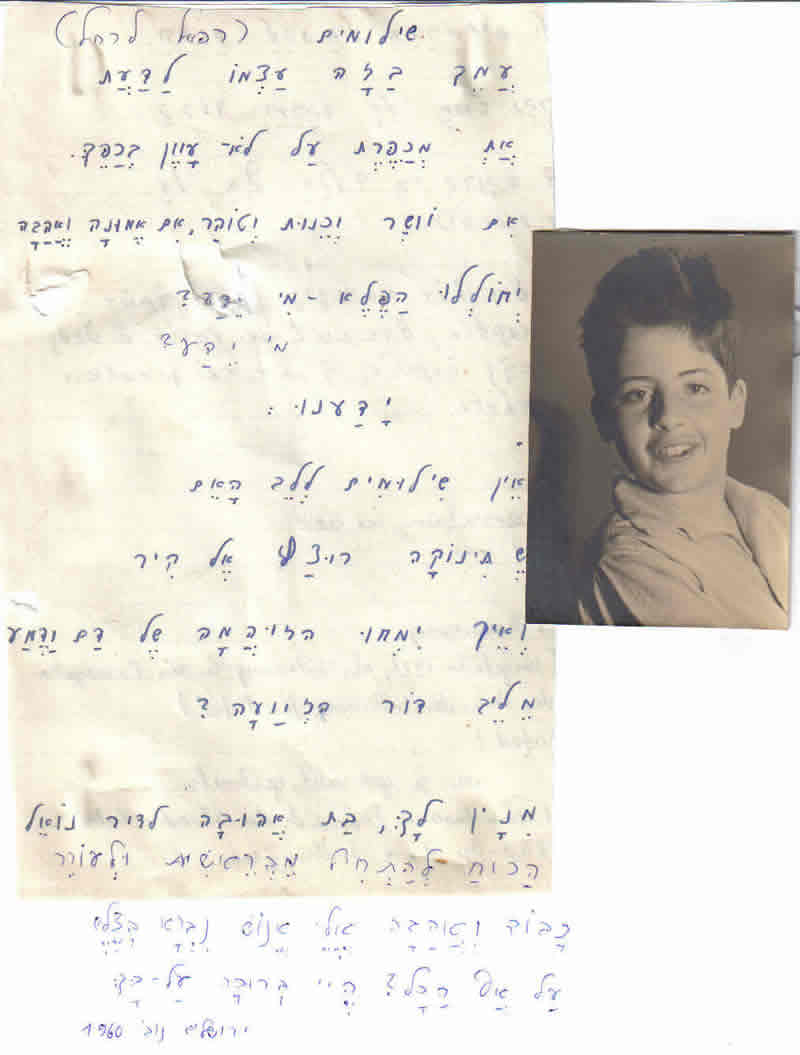 שילומים (רפאל לרחל)
עַמֵךְ בַּזֶה עַצְמוֹ לַדַעַת
אַתְ מְכַפֶּרֶת עַל לֹא-עָווֹן בְּכַפֵּךְ.
אִם יוֹשֶר וְכֵנוּת וְטוֹהַר, אִם אֱמוּנָה וְאַהֲבָה
יְחוֹלְלוּ הַפֶּלֶא - מִי יֵדַע?
מי יֵדַע?
יָדַענוּ:
אֵין שִילוּמִים לְלֵב הָאֵם
שֶתִינוֹקָה רוּצַץ אֶל קִיר
וְאֵיךְ יִמְחוּ הַזוּהֲמָה שֶל דַם וָדֶמַע
מִלֵב דוֹר הַזְוָעָה?
מִנַיִן לָךְ, בַּת אֲהוּבָה לדור נוֹאַל
הַכוֹחַ לְהַתְחִיל מִבְּרֵאשִית וּלְעוֹרֵר
כָּבוֹד וְאַהֲבָה אֱלֵי אֱנוֹש נִבְרָא בְּצֶלֶם
עַל אַף הַכָּל? הֲיִי בְּרוּכָה עַל-כָּךְ
ירושלים נוב' 1960